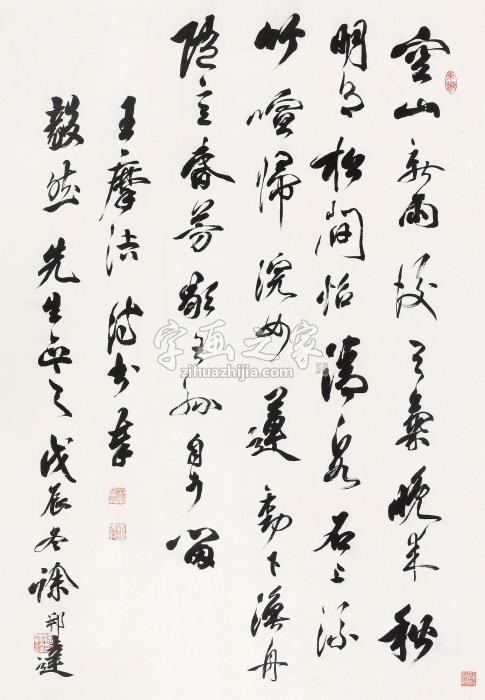 空山新雨後天氣晚來秋
明月松間照清泉石上流
竹喧歸浣女蓮動下漁舟
隨意春芳歇王孫自可留
王摩詰詩書奉
毅然先生正之戊辰冬徐邦達
字画之家
zihuazhijia.com